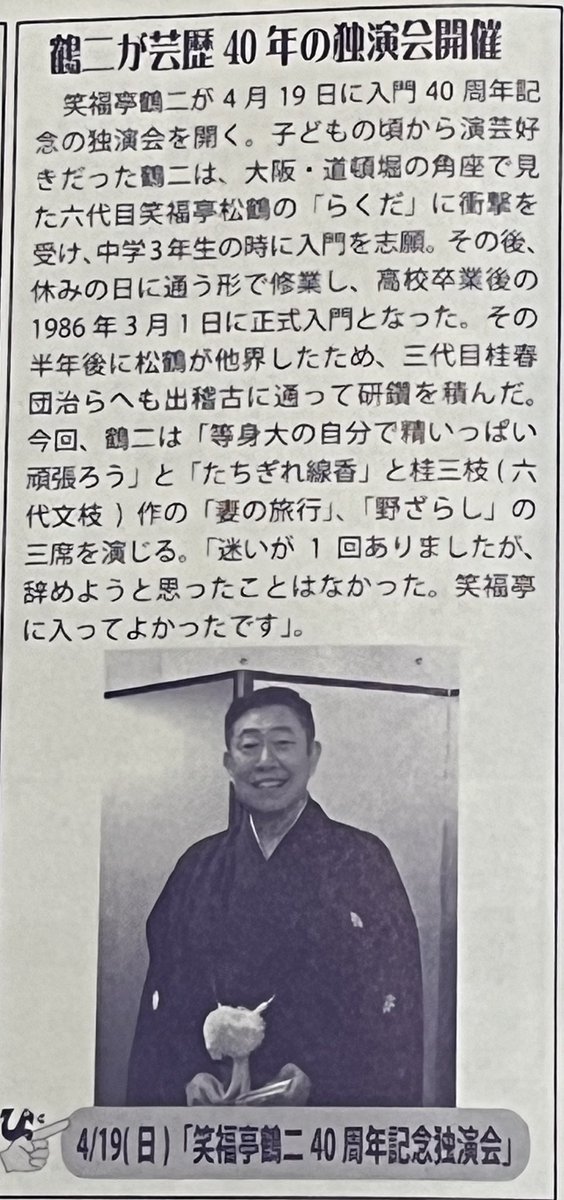 鶴二が芸歴40年の独演会開催
笑福亭鶴二が4月19日に入門40周年記
念の独演会を開く。子どもの頃から演芸好
きだった鶴二は、大阪・道頓堀の角座で見
た六代目笑福亭松鶴の「らくだ」に衝撃を
受け、中学3年生の時に入門を志願。その後、
休みの日に通う形で修業し、高校卒業後の
1986年3月1日に正式入門となった。その
半年後に松鶴が他界したため、三代目桂春
団治らへも出稽古に通って研鑽を積んだ。
今回、鶴二は「等身大の自分で精いっぱい
頑張ろう」と「たちぎれ線香」と桂三枝(六
代文枝)作の「妻の旅行」、「野ざらし」の
三席を演じる。「迷いが1回ありましたが、
辞めようと思ったことはなかった。笑福亭
に入ってよかったです」。
4/19(日)「笑福亭鶴二40周年記念独演会」